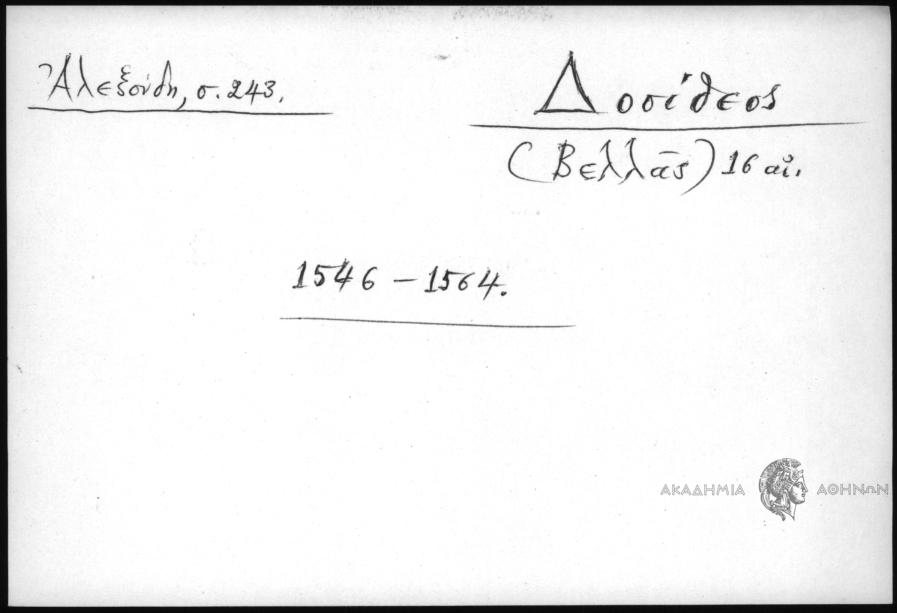 Ἀλεξούδη, σ. 243.
Δοσίθεος
(Βελλᾶς) 16 αἰ.
1546 – 1564.
ΑΚΑΔΗΜΙΑ ΑΘΗΝΩΝ